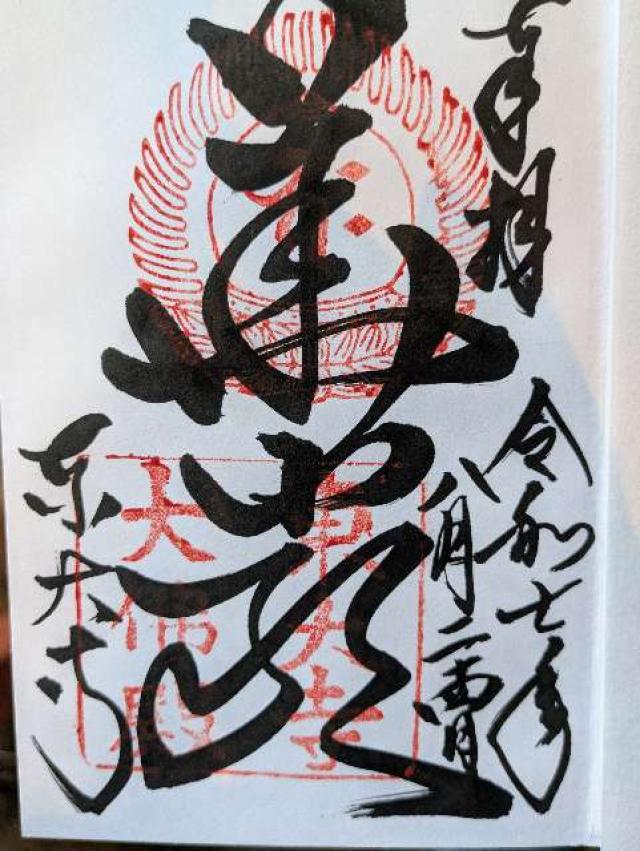 奉拝
令和七年
八月二
華厳
東大寺
大佛殿
東大寺